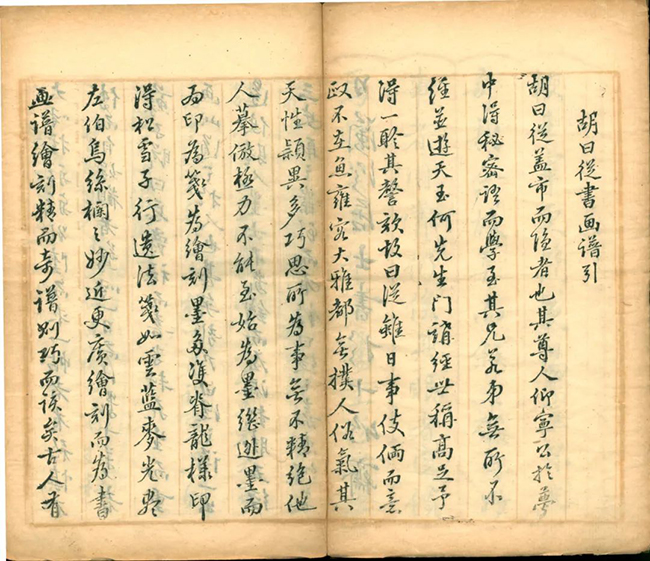 胡曰從書画譜引
胡曰從盖市而隐者也其尊人仰寧公於夢
中得秘密語而學至其兄若弟無所不
經並遊天玉何先生門譜經世稱高足予
得一聆其謦欬故曰從雖日事伎倆而意
政不在魚雍容大雅都無撲人俗氣其
天性穎異多巧思所為事無不精絶他
人摹倣極力不能至始為墨繼遊墨而
為印為箋為繪刻墨多雙脊龍樣印
得松雪子行遺法箋如雲藍麥光盡
左伯烏絲欄之妙近更廣繪刻而為書
画譜繪刻精而奇譜則巧而該矣古人有